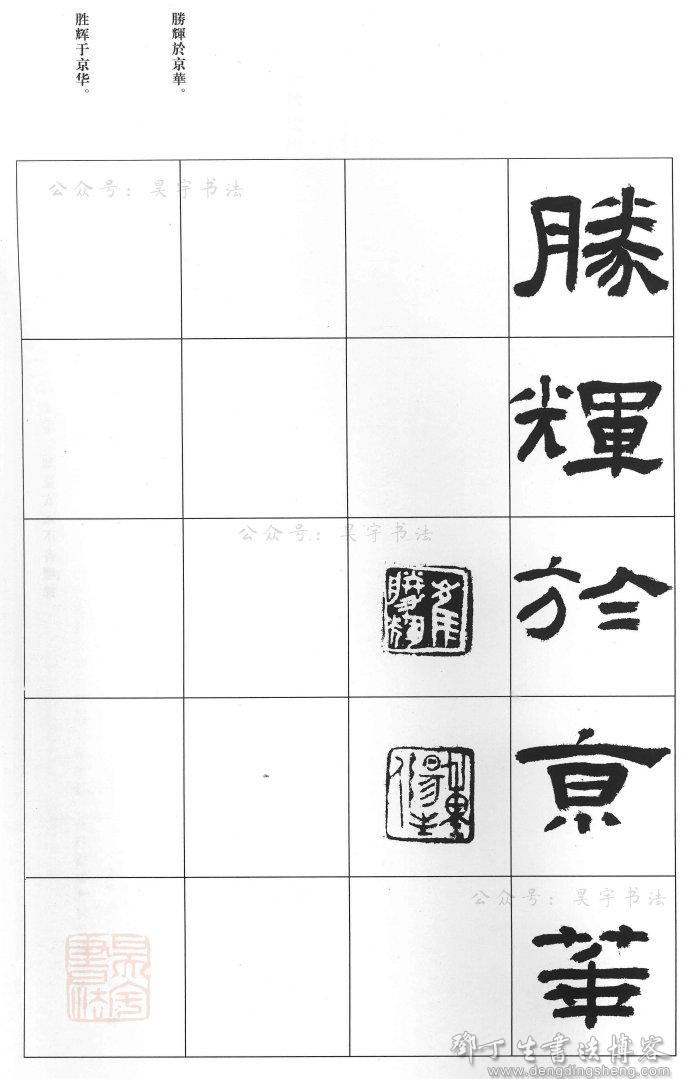 勝輝於京華。
胜辉于京华。
勝
輝
於
京
華
公众号：昊宇书法
公众号：昊宇书法
公众号：昊宇书法
昊宇書法
鄧丁生書法博客
www.dengdingsheng.com